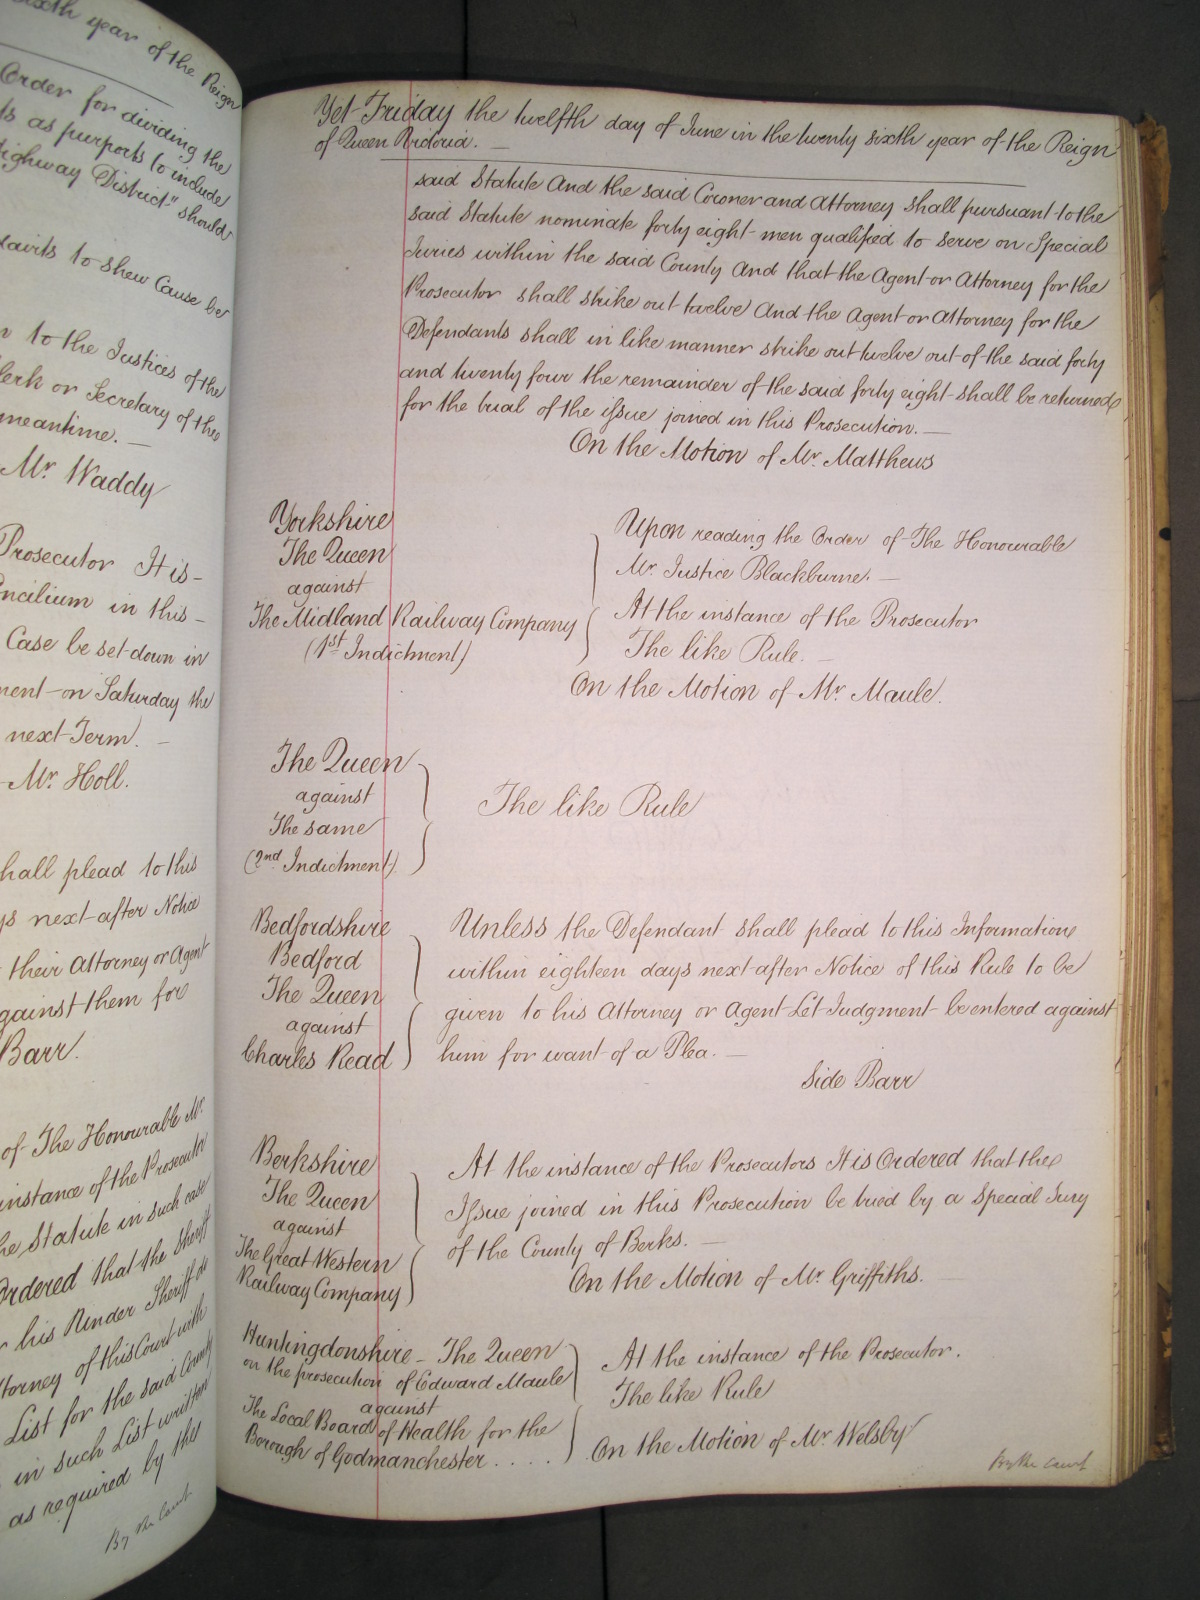 sixth year of the Reign
Order for dividing the
as purports to include
Highway District" should
to shew Cause be
to the Justices of the
Clerk or Secretary of the
meantime. —
Mr. Waddy
Prosecutor It is -
Concilium in this -
Case be set down in
on Saturday the
next Term. -
Mr. Holl.
shall plead to this
next after Notice
their Attorney or Agent
against them for
Barr.
of The Honourable Mr.
instance of the Prosecutor
the Statute in such case
Ordered that the Sheriff
his Under Sheriff do
Attorney of this Court with
List for the said County
in such List written
as required by the
By the Court
Yet Friday the twelfth day of June in the twenty sixth year of the Reign
of Queen Victoria. —
said Statute And the said Coroner and Attorney shall pursuant to the
said Statute nominate forty eight men qualified to serve on Special
Juries within the said County And that the Agent or Attorney for the
Prosecutor shall strike out twelve And the Agent or Attorney for the
Defendants shall in like manner strike out twelve out of the said forty
and twenty four the remainder of the said forty eight shall be returned
for the trial of the issue joined in this Prosecution. —
On the Motion of Mr. Matthews
Yorkshire
The Queen
against
The Midland Railway Company
(1st Indictment)
Upon reading the Order of The Honourable
Mr. Justice Blackburne. —
At the instance of the Prosecutor
The like Rule. —
On the Motion of Mr. Maule.
The Queen
against
The same
(2nd Indictment)
The like Rule
Bedfordshire
Bedford
The Queen
against
Charles Read
Unless the Defendant shall plead to this Information
within eighteen days next after Notice of this Rule to be
given to his Attorney or Agent Let Judgment be entered against
him for want of a Plea. —
Side Barr
Berkshire
The Queen
against
The Great Western
Railway Company
At the instance of the Prosecutors It is Ordered that the
Issue joined in this Prosecution be tried by a Special Jury
of the County of Berks. —
On the Motion of Mr. Griffiths.
Huntingdonshire - The Queen
on the prosecution of Edward Maule
against
The Local Board of Health for the
Borough of Godmanchester . . . . .
At the instance of the Prosecutor.
The like Rule
On the Motion of Mr. Welsby
By the Court